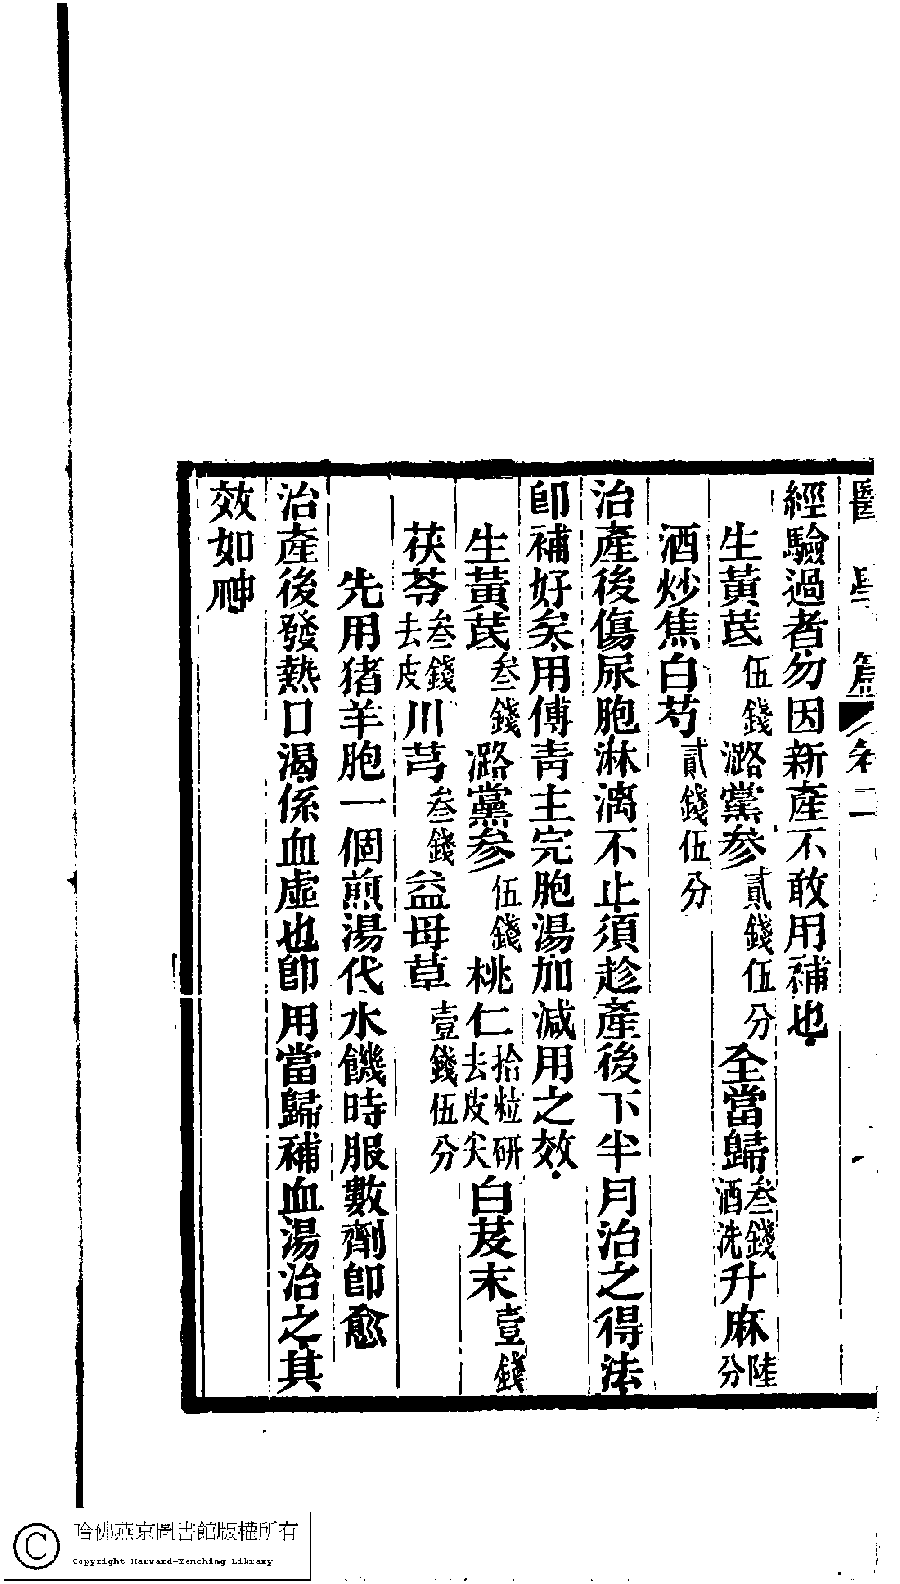 醫學篇 卷二
經驗過者勿因新產不敢用補也
生黃芪伍錢潞黨參貳錢伍分全當歸叁錢酒洗升麻陸分
酒炒焦白芍貳錢伍分
治產後傷尿胞淋漓不止須趁產後下半月治之得法
卽補好矣用傅青主完胞湯加減用之效
生黃芪叁錢潞黨參伍錢桃仁拾粒研去皮尖白芨末壹錢
茯苓叁錢去皮川芎叁錢益母草壹錢伍分
先用猪羊胞一個煎湯代水饑時服數劑卽愈
治產後發熱口渴係血虛也卽用當歸補血湯治之其
效如神
哈佛燕京圖書館版權所有
Copyright Harvard-Yenching Library